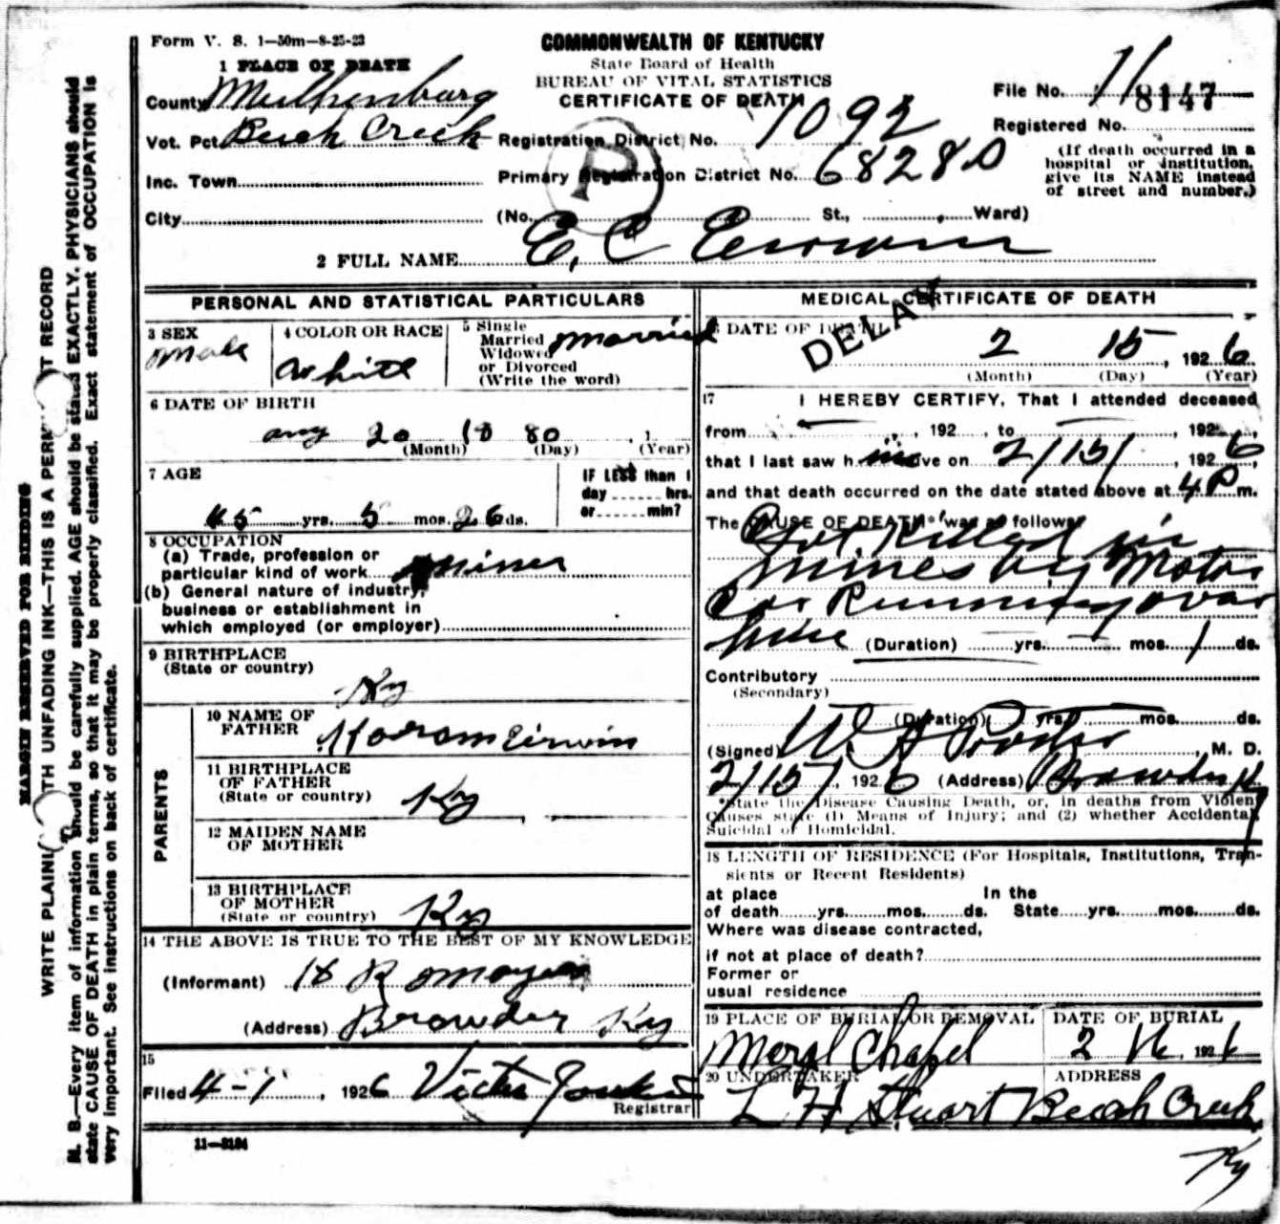 Form V. S. 1—50m—8-25-23
COMMONWEALTH OF KENTUCKY
State Board of Health
BUREAU OF VITAL STATISTICS
CERTIFICATE OF DEATH
1 PLACE OF DEATH
County Muhlenburg
Vot. Pct. Beech Creek
Inc. Town
City
Registration District No. 1092
Primary Registration District No. 6828
(No. St., Ward)
File No. 8147
Registered No.
(If death occurred in a
hospital or institution,
give its NAME instead
of street and number.)
P
2 FULL NAME E. C. Erwin
PERSONAL AND STATISTICAL PARTICULARS
3 SEX
Male
4 COLOR OR RACE
White
5 Single
Married
Widowed
or Divorced
(Write the word)
Married
6 DATE OF BIRTH
20 1880
(Month) (Day) , 1 (Year)
7 AGE
45 yrs. 5 mos. 26 ds.
IF LESS than 1
day hrs.
or min?
8 OCCUPATION
(a) Trade, profession or
particular kind of work Miner
(b) General nature of industry,
business or establishment in
which employed (or employer)
9 BIRTHPLACE
(State or country)
Ky
PARENTS
10 NAME OF
FATHER
Erwin
11 BIRTHPLACE
OF FATHER
(State or country)
Ky
12 MAIDEN NAME
OF MOTHER
13 BIRTHPLACE
OF MOTHER
(State or country)
Ky
14 THE ABOVE IS TRUE TO THE BEST OF MY KNOWLEDGE
(Informant) H R
(Address) Browder Ky
15
Filed 4-1, 1926 Registrar
11—3184
MEDICAL CERTIFICATE OF DEATH
DELAY
DATE OF DEATH
2 15, 1926
(Month) (Day) (Year)
17 I HEREBY CERTIFY, That I attended deceased
from , 192 , to , 192 ,
that I last saw h im alive on 2/15/, 1926,
and that death occurred on the date stated above at 4 P m.
The CAUSE OF DEATH* was as follows
Got Killed in
mines by Motor
Car Running over
him (Duration) yrs. mos. 1 ds.
Contributory
(Secondary)
(Duration) yrs. mos. ds.
(Signed) W , M. D.
2/15/, 1926 (Address) Browder K
*State the Disease Causing Death, or, in deaths from Violent
Causes state (1) Means of Injury; and (2) whether Accidental,
Suicidal or Homicidal.
18 LENGTH OF RESIDENCE (For Hospitals, Institutions, Tran-
sients or Recent Residents)
at place In the
of death yrs. mos. ds. State yrs. mos. ds.
Where was disease contracted,
if not at place of death?
Former or
usual residence
19 PLACE OF BURIAL OR REMOVAL
Chapel
DATE OF BURIAL
2 16, 192
20 UNDERTAKER
L H Stuart
ADDRESS
Beech Creek
Ky
MARGIN RESERVED FOR BINDING
WRITE PLAINL TH UNFADING INK—THIS IS A PERM T RECORD
N. B.—Every item of information should be carefully supplied. AGE should be stated EXACTLY. PHYSICIANS should
state CAUSE OF DEATH in plain terms, so that it may be properly classified. Exact statement of OCCUPATION is
very important. See instructions on back of certificate.